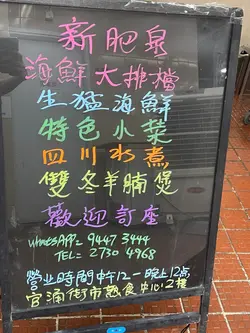 新肥泉
海鮮大排檔
生猛海鮮
特色小菜
四川水煮
雙冬羊腩煲
歡迎訂座
WhatsAPP= 9447 3444
TEL= 2730 4968
營业時間中午12一晚上12点
官涌街市熟食中心2樓